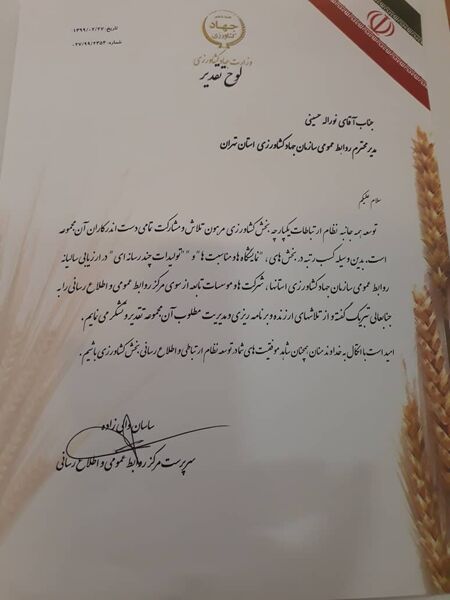 تاریخ: ۱۳۹۹/۰۲/۲۷
شماره: ۰۲۷/۹۹/۲۳۵۴
جهاد
کشاورزی
وزارت جهاد کشاورزی
لوح تقدیر
جناب آقای نوراله حسینی
مدیر محترم روابط عمومی سازمان جهاد کشاورزی استان تهران
سلام علیکم
توسعه همه جانبه نظام ارتباطات یکپارچه بخش کشاورزی مرهون تلاش و مشارکت تمامی دست اندرکاران آن مجموعه
است. بدین وسیله کسب رتبه در بخش های، "نمایشگاه ها و مناسبت ها" و "تولیدات چند رسانه ای" در ارزیابی سالیانه
روابط عمومی سازمان جهاد کشاورزی استانها، شرکت ها و موسسات تابعه از سوی مرکز روابط عمومی و اطلاع رسانی را به
جنابعالی تبریک گفته و از تلاشهای ارزنده و برنامه ریزی و مدیریت مطلوب آن مجموعه تقدیر و تشکر می نمایم.
امید است با اتکال به خداوند منان همچنان شاهد موفقیت های شما در توسعه نظام ارتباطی و اطلاع رسانی بخش کشاورزی باشیم.
ساسان ولی زاده
سرپرست مرکز روابط عمومی و اطلاع رسانی